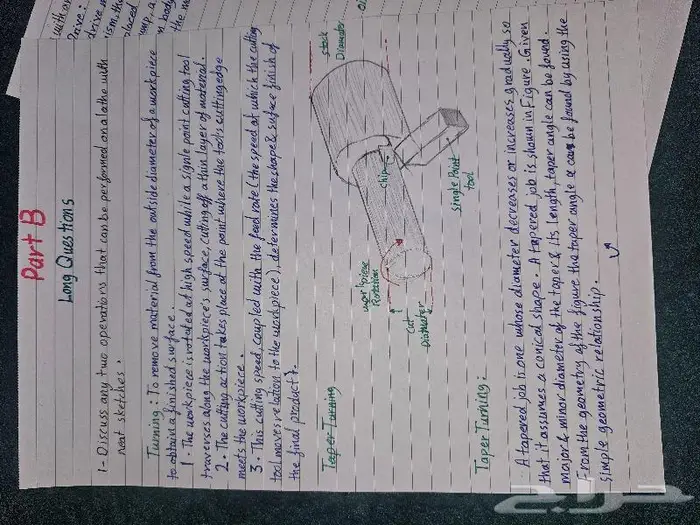 Part B
Long Questions
1- Discuss any two operations that can be performed on a lathe with
neat sketches.
Turning: To remove material from the outside diameter of a workpiece
to obtain a finished surface.
1. The workpiece is rotated at high speed while a signle point cutting tool
traverses along the workpiece's surface, cutting off a thin layer of material.
2. The cutting action takes place at the point where the tool's cutting edge
meets the workpiece.
3. This cutting speed, coupled with the feed rate (the speed at which the cutting
tool moves relation to the workpiece), determines the shape & surface finish of
the final product.
stock
Diameter
chip
Single Point
tool
workpiece
Rotation
Cut
Diameter
Taper Turning
Taper Turning:
A tapered job is one whose diameter decreases or increases gradually so
that it assumes a conical shape. A tapered job is shown in Figure. Given
major & minor diameter of the taper & its length, taper angle can be found.
From the geometry of the figure the taper angle α can be found by using the
simple geometric relationship.
with on
Drive:
drive
ism, th
placed
body
حراج